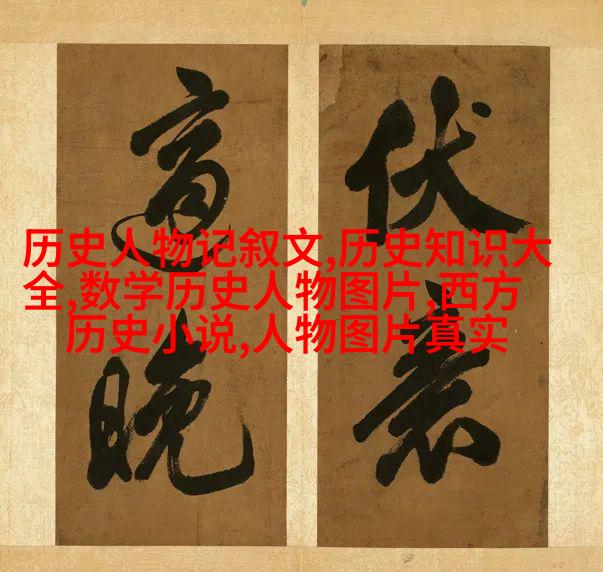 历史人物记叙文,历史知识大
全,数学历史人物图片,西方
历史小说,人物图片真实
伏
晚